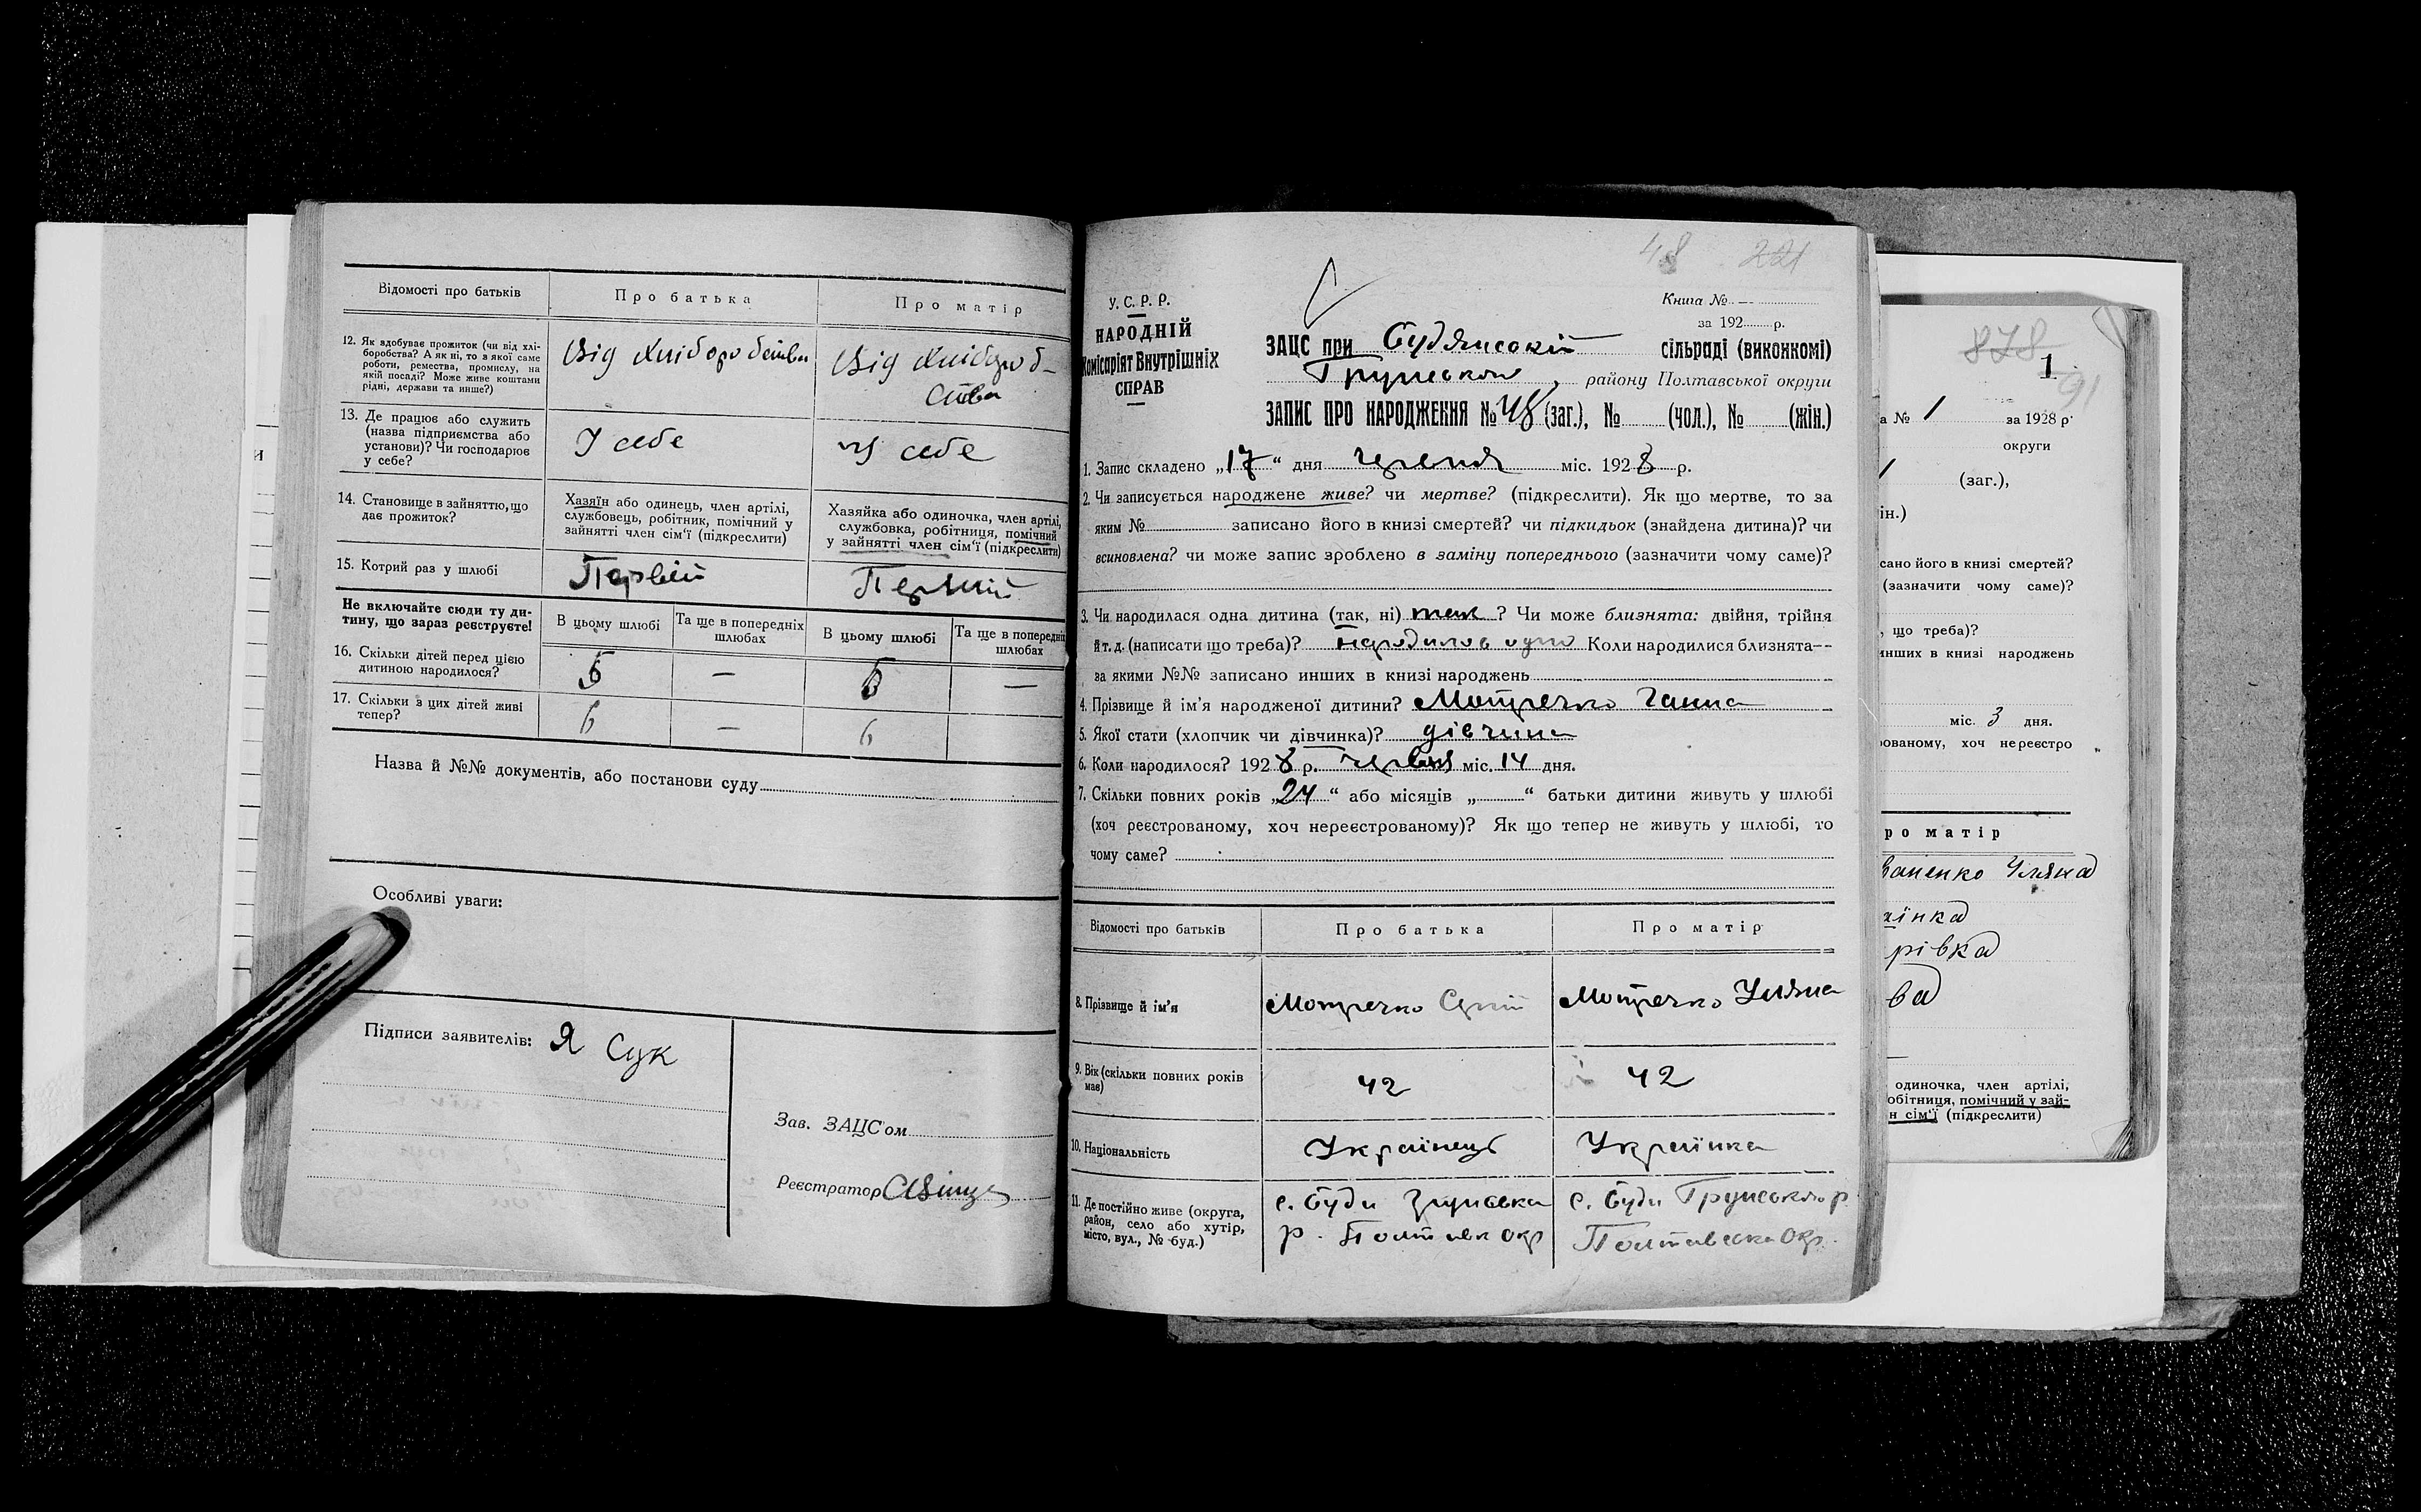 Відомості про батьків
Про батька
Про матір
12. Як здобуває прожиток (чи від хлі-
боробства? А як ні, то з якої саме
роботи, ремества, промислу, на
якій посаді? Може живе коштами
рідні, держави та инше?)
Від хліборобства
Від хлібороб-
ства
13. Де працює або служить
(назва підприємства або
установи)? Чи господарює
у себе?
У себе
У себе
14. Становище в зайняттю, що
дає прожиток?
Хазяїн або одинець, член артілі,
службовець, робітник, помічний у
зайнятті член сім'ї (підкреслити)
Хазяйка або одиночка, член артілі,
службовка, робітниця, помічний
у зайнятті член сім'ї (підкреслити)
15. Котрий раз у шлюбі
Первій
Не включайте сюди ту ди-
тину, що зараз реєструєте!
В цьому шлюбі
Та ще в попередніх
шлюбах
В цьому шлюбі
Та ще в попередніх
шлюбах
16. Скільки дітей перед цією
дитиною народилося?
—
—
17. Скільки з цих дітей живі
тепер?
6
—
6
Назва й №№ документів, або постанови суду
Особливі уваги:
Підписи заявителів: Я Сук
Зав. ЗАЦС'ом
Реєстратор
48 221
У. С. Р. Р.
НАРОДНІЙ
Комісаріят Внутрішніх
СПРАВ
Книга № —
за 192 р.
ЗАЦС при Будянській сільраді (виконкомі)
району Полтавської округи
ЗАПИС ПРО НАРОДЖЕННЯ № 48 (заг.), № (чол.), № (жін.)
1. Запис складено „17“ дня червня міс. 1928 р.
2. Чи записується народжене живе? чи мертве? (підкреслити). Як що мертве, то за
яким № записано його в книзі смертей? чи підкидьок (знайдена дитина)? чи
всиновлена? чи може запис зроблено в заміну попереднього (зазначити чому саме)?
3. Чи народилася одна дитина (так, ні) так? Чи може близнята: двійня, трійня
й т. д. (написати що треба)? народилось одно Коли народилися близнята--
за якими №№ записано инших в книзі народжень
4. Прізвище й ім'я народженої дитини? Мотречко Ганна
5. Якої стати (хлопчик чи дівчинка)? дівчина
6. Коли народилося? 1928 р. червня міс. 14 дня.
7. Скільки повних років „24“ або місяців „ “ батьки дитини живуть у шлюбі
(хоч реєстрованому, хоч нереєстрованому)? Як що тепер не живуть у шлюбі, то
чому саме?
Відомості про батьків
Про батька
Про матір
8. Прізвище й ім'я
Мотречко Сергій
Мотречко Уляна
9. Вік (скільки повних років
має)
42
42
10. Національність
Українець
Українка
11. Де постійно живе (округа,
район, село або хутір,
місто, вул., № буд.)
с. Буди Грунська
р. Полтавск Окр
с. Буди Грунського р
Полтавська Окр.
878
1
91
а № 1 за 1928 р.
округи
(заг.),
ін.)
сано його в книзі смертей?
(зазначити чому саме)?
, що треба)?
инших в книзі народжень
міс. 3 дня.
ованому, хоч нереєстро
ро матір
ваненко Уляна
аїнка
рівка
ва
одиночка, член артілі,
обітниця, помічний у зай-
н сім'ї (підкреслити)